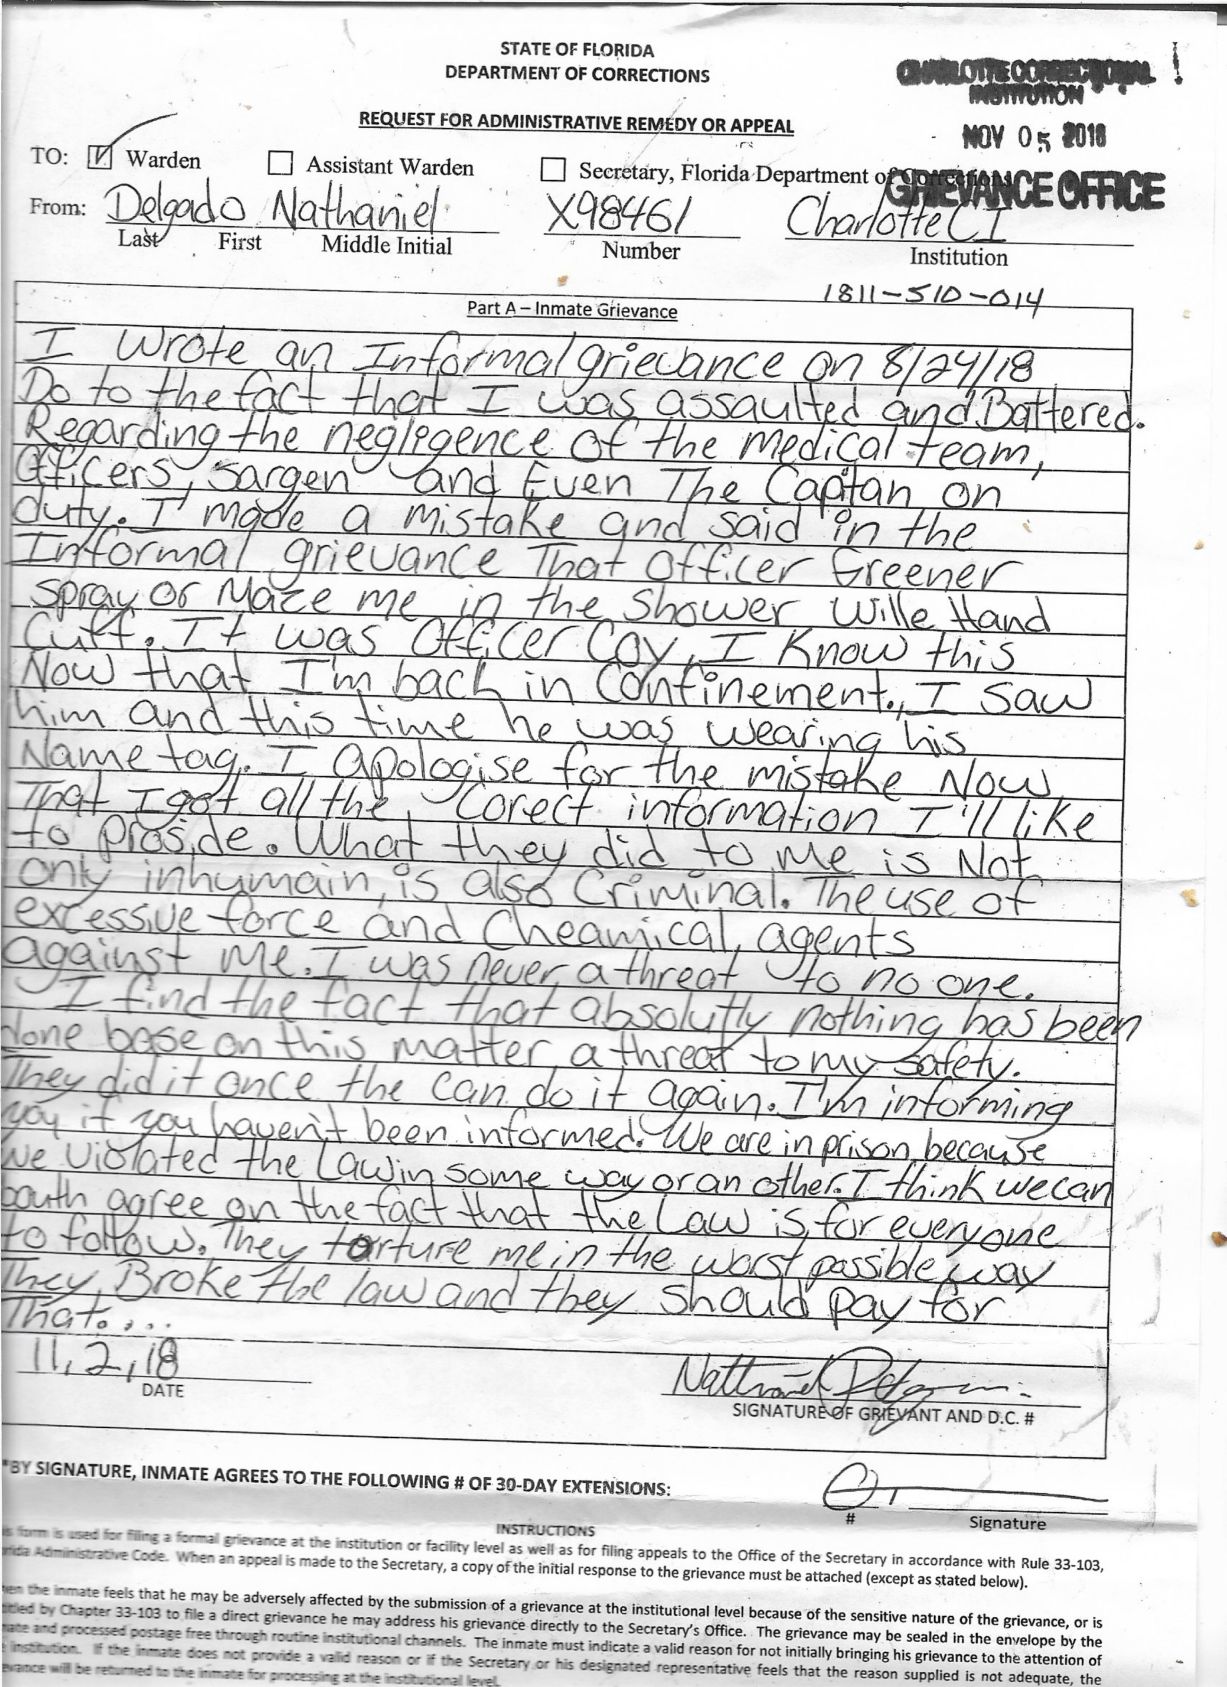 STATE OF FLORIDA
DEPARTMENT OF CORRECTIONS
CHARLOTTE CORRECTIONAL
INSTITUTION
REQUEST FOR ADMINISTRATIVE REMEDY OR APPEAL
NOV 05 2018
TO: Warden Assistant Warden Secretary, Florida Department of Corrections
GRIEVANCE OFFICE
From: Delgado Nathaniel X98461 Charlotte CI
Last First Middle Initial Number Institution
1811-510-014
Part A – Inmate Grievance
I Wrote an Informal grievance on 8/24/18
Do to the fact that I was assaulted and Battered.
Regarding the neglegence of the medical team,
Officers, Sargen and Even The Captan on
duty. I made a mistake and said in the
Informal grievance That Officer Greener
spray or Maze me in the shower Wille Hand
Cuff. It was Officer Coy, I Know this
Now that I'm back in Confinement., I saw
him and this time he was wearing his
Name tag. I apologise for the mistake Now
That I got all the corect information I'll like
to proside. What they did to me is Not
only inhumain, is also Criminal. The use of
excessive force and Cheamical agents
against me. I was never a threat to no one.
I find the fact that absolutly nothing has been
done base on this matter a threat to my safety.
They did it once the can do it again. I'm informing
you if you haven't been informed. We are in prison because
we violated the Law in some way or an other. I think we can
bouth agree on the fact that the Law is for everyone
to follow. They torture me in the worst possible way
They Broke the law and they should pay for
That....
11,2,18
DATE
SIGNATURE OF GRIEVANT AND D.C. #
*BY SIGNATURE, INMATE AGREES TO THE FOLLOWING # OF 30-DAY EXTENSIONS:
# Signature
INSTRUCTIONS
form is used for filing a formal grievance at the institution or facility level as well as for filing appeals to the Office of the Secretary in accordance with Rule 33-103,
Administrative Code. When an appeal is made to the Secretary, a copy of the initial response to the grievance must be attached (except as stated below).
the inmate feels that he may be adversely affected by the submission of a grievance at the institutional level because of the sensitive nature of the grievance, or is
by Chapter 33-103 to file a direct grievance he may address his grievance directly to the Secretary's Office. The grievance may be sealed in the envelope by the
and processed postage free through routine institutional channels. The inmate must indicate a valid reason for not initially bringing his grievance to the attention of
institution. If the inmate does not provide a valid reason or if the Secretary or his designated representative feels that the reason supplied is not adequate, the
will be returned to the inmate for processing at the institutional level.